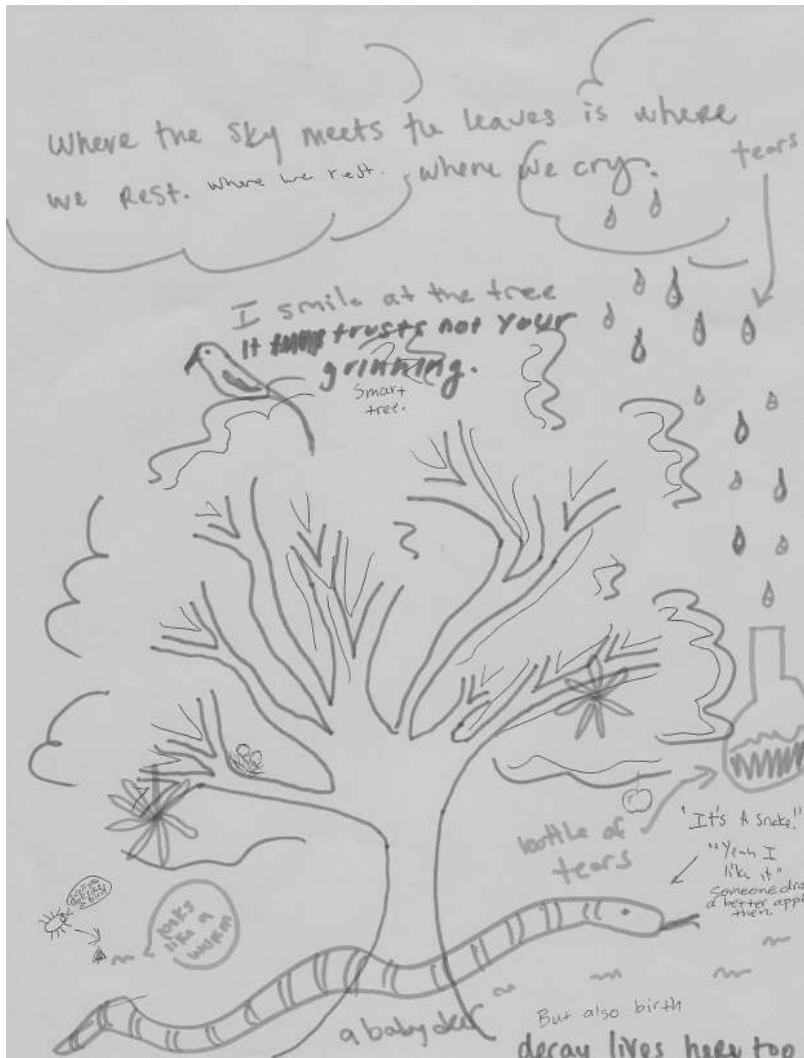 Where the sky meets the leaves is where
we Rest. where we rest. where we cry.
tears
I smile at the tree
It trusts not your
grinning.
Smart
tree.
bottle of
tears
"It's A snake!"
"Yeah I
like it"
Someone dra
a better appl
then.
looks
like a
worm
a baby deer
But also birth
decay lives here too